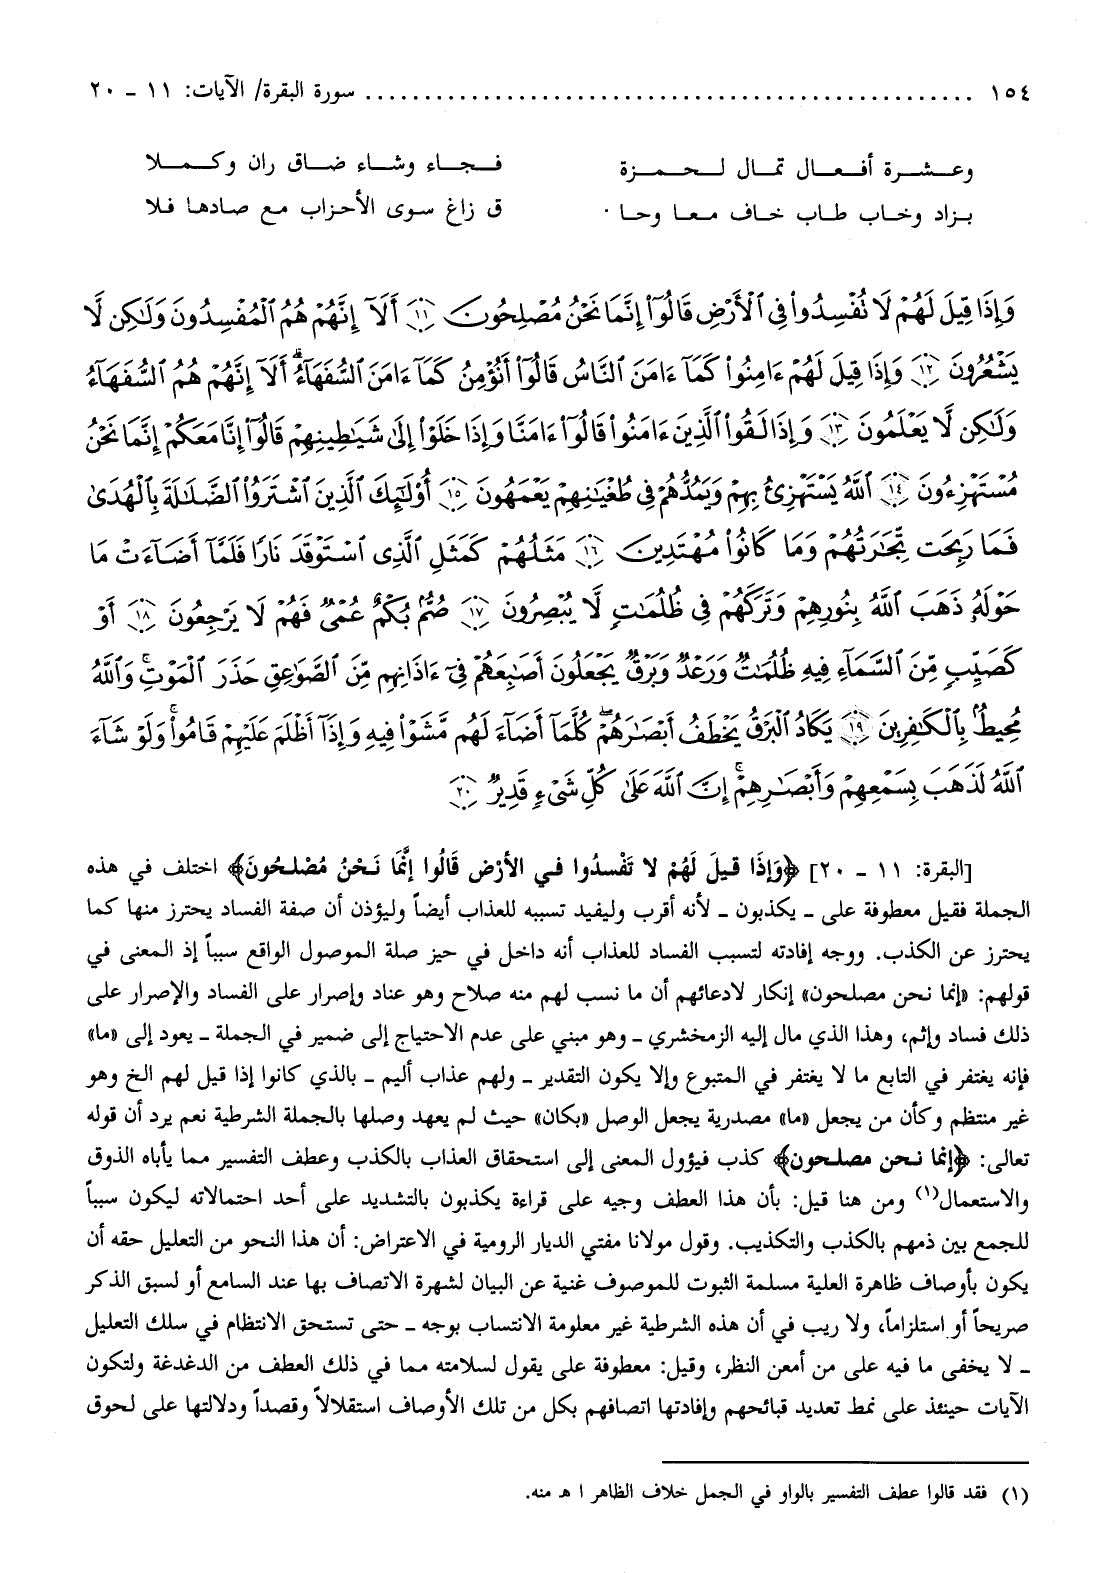 ١٥٤ .................................................... سورة البقرة/ الآيات: ١١ - ٢٠
وعـــشـــرة أفـــعـــال تمـــال لـــحـــمـــزة فـــجـــاء وشـــاء ضـــاق ران وكـــمـــلا
بـزاد وخـاب طـاب خـاف مـعـا وحـا ق زاغ سوى الأحزاب مـع صادهـا فـلا
وَإِذَا قِيلَ لَهُمْ لَا تُفْسِدُوا۟ فِى ٱلْأَرْضِ قَالُوٓا۟ إِنَّمَا نَحْنُ مُصْلِحُونَ ١١ أَلَآ إِنَّهُمْ هُمُ ٱلْمُفْسِدُونَ وَلَٰكِن لَّا
يَشْعُرُونَ ١٢ وَإِذَا قِيلَ لَهُمْ ءَامِنُوا۟ كَمَآ ءَامَنَ ٱلنَّاسُ قَالُوٓا۟ أَنُؤْمِنُ كَمَآ ءَامَنَ ٱلسُّفَهَآءُ ۗ أَلَآ إِنَّهُمْ هُمُ ٱلسُّفَهَآءُ
وَلَٰكِن لَّا يَعْلَمُونَ ١٣ وَإِذَا لَقُوا۟ ٱلَّذِينَ ءَامَنُوا۟ قَالُوٓا۟ ءَامَنَّا وَإِذَا خَلَوْا۟ إِلَىٰ شَيَٰطِينِهِمْ قَالُوٓا۟ إِنَّا مَعَكُمْ إِنَّمَا نَحْنُ
مُسْتَهْزِءُونَ ١٤ ٱللَّهُ يَسْتَهْزِئُ بِهِمْ وَيَمُدُّهُمْ فِى طُغْيَٰنِهِمْ يَعْمَهُونَ ١٥ أُو۟لَٰٓئِكَ ٱلَّذِينَ ٱشْتَرَوُا۟ ٱلضَّلَٰلَةَ بِٱلْهُدَىٰ
فَمَا رَبِحَت تِّجَٰرَتُهُمْ وَمَا كَانُوا۟ مُهْتَدِينَ ١٦ مَثَلُهُمْ كَمَثَلِ ٱلَّذِى ٱسْتَوْقَدَ نَارًا فَلَمَّآ أَضَآءَتْ مَا
حَوْلَهُۥ ذَهَبَ ٱللَّهُ بِنُورِهِمْ وَتَرَكَهُمْ فِى ظُلُمَٰتٍ لَّا يُبْصِرُونَ ١٧ صُمٌّۢ بُكْمٌ عُمْىٌ فَهُمْ لَا يَرْجِعُونَ ١٨ أَوْ
كَصَيِّبٍ مِّنَ ٱلسَّمَآءِ فِيهِ ظُلُمَٰتٌ وَرَعْدٌ وَبَرْقٌ يَجْعَلُونَ أَصَٰبِعَهُمْ فِىٓ ءَاذَانِهِم مِّنَ ٱلصَّوَٰعِقِ حَذَرَ ٱلْمَوْتِ ۚ وَٱللَّهُ
مُحِيطٌۢ بِٱلْكَٰفِرِينَ ١٩ يَكَادُ ٱلْبَرْقُ يَخْطَفُ أَبْصَٰرَهُمْ ۖ كُلَّمَآ أَضَآءَ لَهُم مَّشَوْا۟ فِيهِ وَإِذَآ أَظْلَمَ عَلَيْهِمْ قَامُوا۟ ۚ وَلَوْ شَآءَ
ٱللَّهُ لَذَهَبَ بِسَمْعِهِمْ وَأَبْصَٰرِهِمْ ۚ إِنَّ ٱللَّهَ عَلَىٰ كُلِّ شَىْءٍ قَدِيرٌ ٢٠
[البقرة: ١١ - ٢٠] ﴿وَإِذَا قِيلَ لَهُمْ لا تَفْسدُوا في الأرْض قَالُوا إنَّمَا نَحْنُ مُصْلحُونَ﴾ اختلف في هذه
الجملة فقيل معطوفة على - يكذبون - لأنه أقرب وليفيد تسببه للعذاب أيضاً وليؤذن أن صفة الفساد يحترز منها كما
يحترز عن الكذب. ووجه إفادته لتسبب الفساد للعذاب أنه داخل في حيز صلة الموصول الواقع سبباً إذ المعنى في
قولهم: «إنما نحن مصلحون» إنكار لادعائهم أن ما نسب لهم منه صلاح وهو عناد وإصرار على الفساد والإصرار على
ذلك فساد وإثم، وهذا الذي مال إليه الزمخشري - وهو مبني على عدم الاحتياج إلى ضمير في الجملة - يعود إلى «ما»
فإنه يغتفر في التابع ما لا يغتفر في المتبوع وإلا يكون التقدير - ولهم عذاب أليم - بالذي كانوا إذا قيل لهم الخ وهو
غير منتظم وكأن من يجعل «ما» مصدرية يجعل الوصل «بكان» حيث لم يعهد وصلها بالجملة الشرطية نعم يرد أن قوله
تعالى: ﴿إنما نحن مصلحون﴾ كذب فيؤول المعنى إلى استحقاق العذاب بالكذب وعطف التفسير مما يأباه الذوق
والاستعمال(١) ومن هنا قيل: بأن هذا العطف وجيه على قراءة يكذبون بالتشديد على أحد احتمالاته ليكون سبباً
للجمع بين ذمهم بالكذب والتكذيب. وقول مولانا مفتي الديار الرومية في الاعتراض: أن هذا النحو من التعليل حقه أن
يكون بأوصاف ظاهرة العلية مسلمة الثبوت للموصوف غنية عن البيان لشهرة الاتصاف بها عند السامع أو لسبق الذكر
صريحاً أو استلزاماً، ولا ريب في أن هذه الشرطية غير معلومة الانتساب بوجه - حتى تستحق الانتظام في سلك التعليل
- لا يخفى ما فيه على من أمعن النظر، وقيل: معطوفة على يقول لسلامته مما في ذلك العطف من الدغدغة ولتكون
الآيات حينئذ على نمط تعديد قبائحهم وإفادتها اتصافهم بكل من تلك الأوصاف استقلالاً وقصداً ودلالتها على لحوق
(١) فقد قالوا عطف التفسير بالواو في الجمل خلاف الظاهر ا هـ منه.